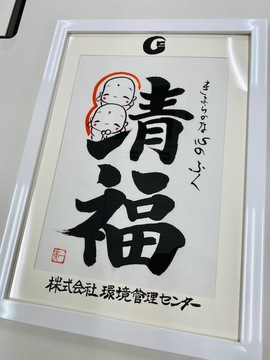 きよらかな心のふく
清福
株式会社 環境管理センター